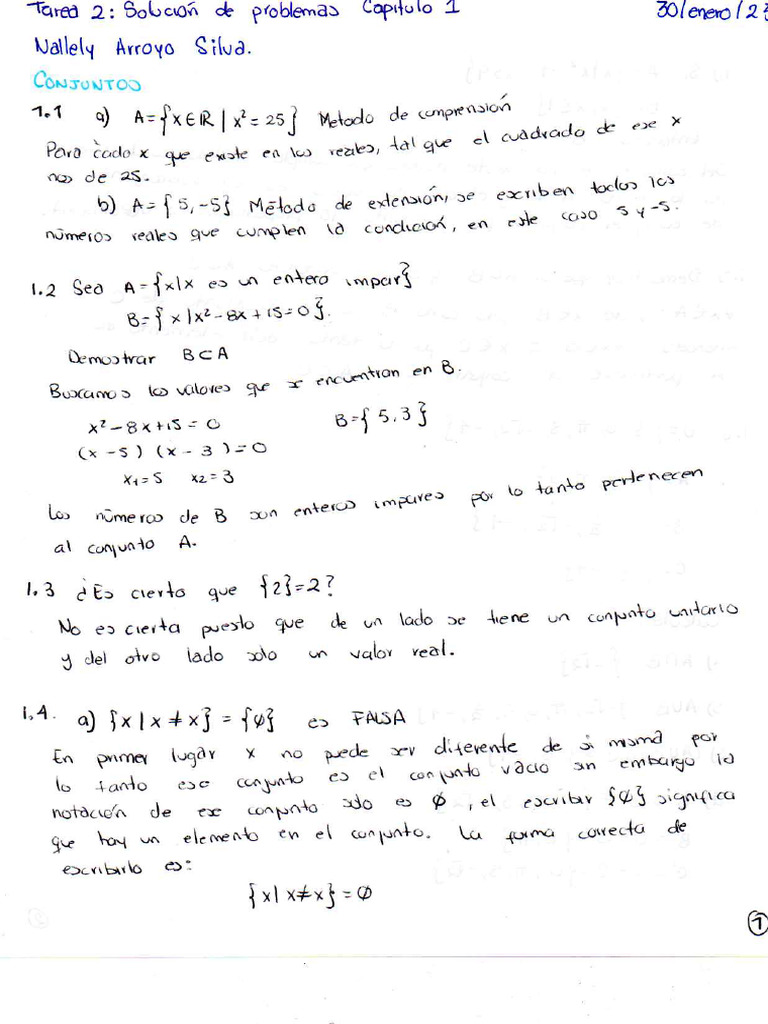 Tarea 2: Solución de problemas Capitulo 1 30/enero/23
Nallely Arroyo Silva.
CONJUNTOS
1.1 a) A={x∈ℝ | x²=25} Metodo de comprensión
Para cada x que existe en los reales, tal que el cuadrado de ese x
nos de 25.
b) A={5,-5} Método de extensión, se escriben todos los
números reales que cumplen la condición, en este caso 5 y -5.
1.2 Sea A={x|x es un entero impar}
B={x|x²-8x+15=0}.
Demostrar B⊂A
Buscamos los valores que se encuentran en B.
x²-8x+15=0 B={5,3}
(x-5)(x-3)=0
x₁=5 x₂=3
Los números de B son enteros impares por lo tanto pertenecen
al conjunto A.
1.3 ¿Es cierto que {2}=2?
No es cierta puesto que de un lado se tiene un conjunto unitario
y del otro lado solo un valor real.
1.4. a) {x|x≠x}={∅} es FALSA
En primer lugar x no puede ser diferente de si misma por
lo tanto ese conjunto es el conjunto vacio sin embargo la
notación de ese conjunto solo es ∅, el escribir {∅} significa
que hay un elemento en el conjunto. La forma correcta de
escribirlo es:
{x|x≠x}=∅
1